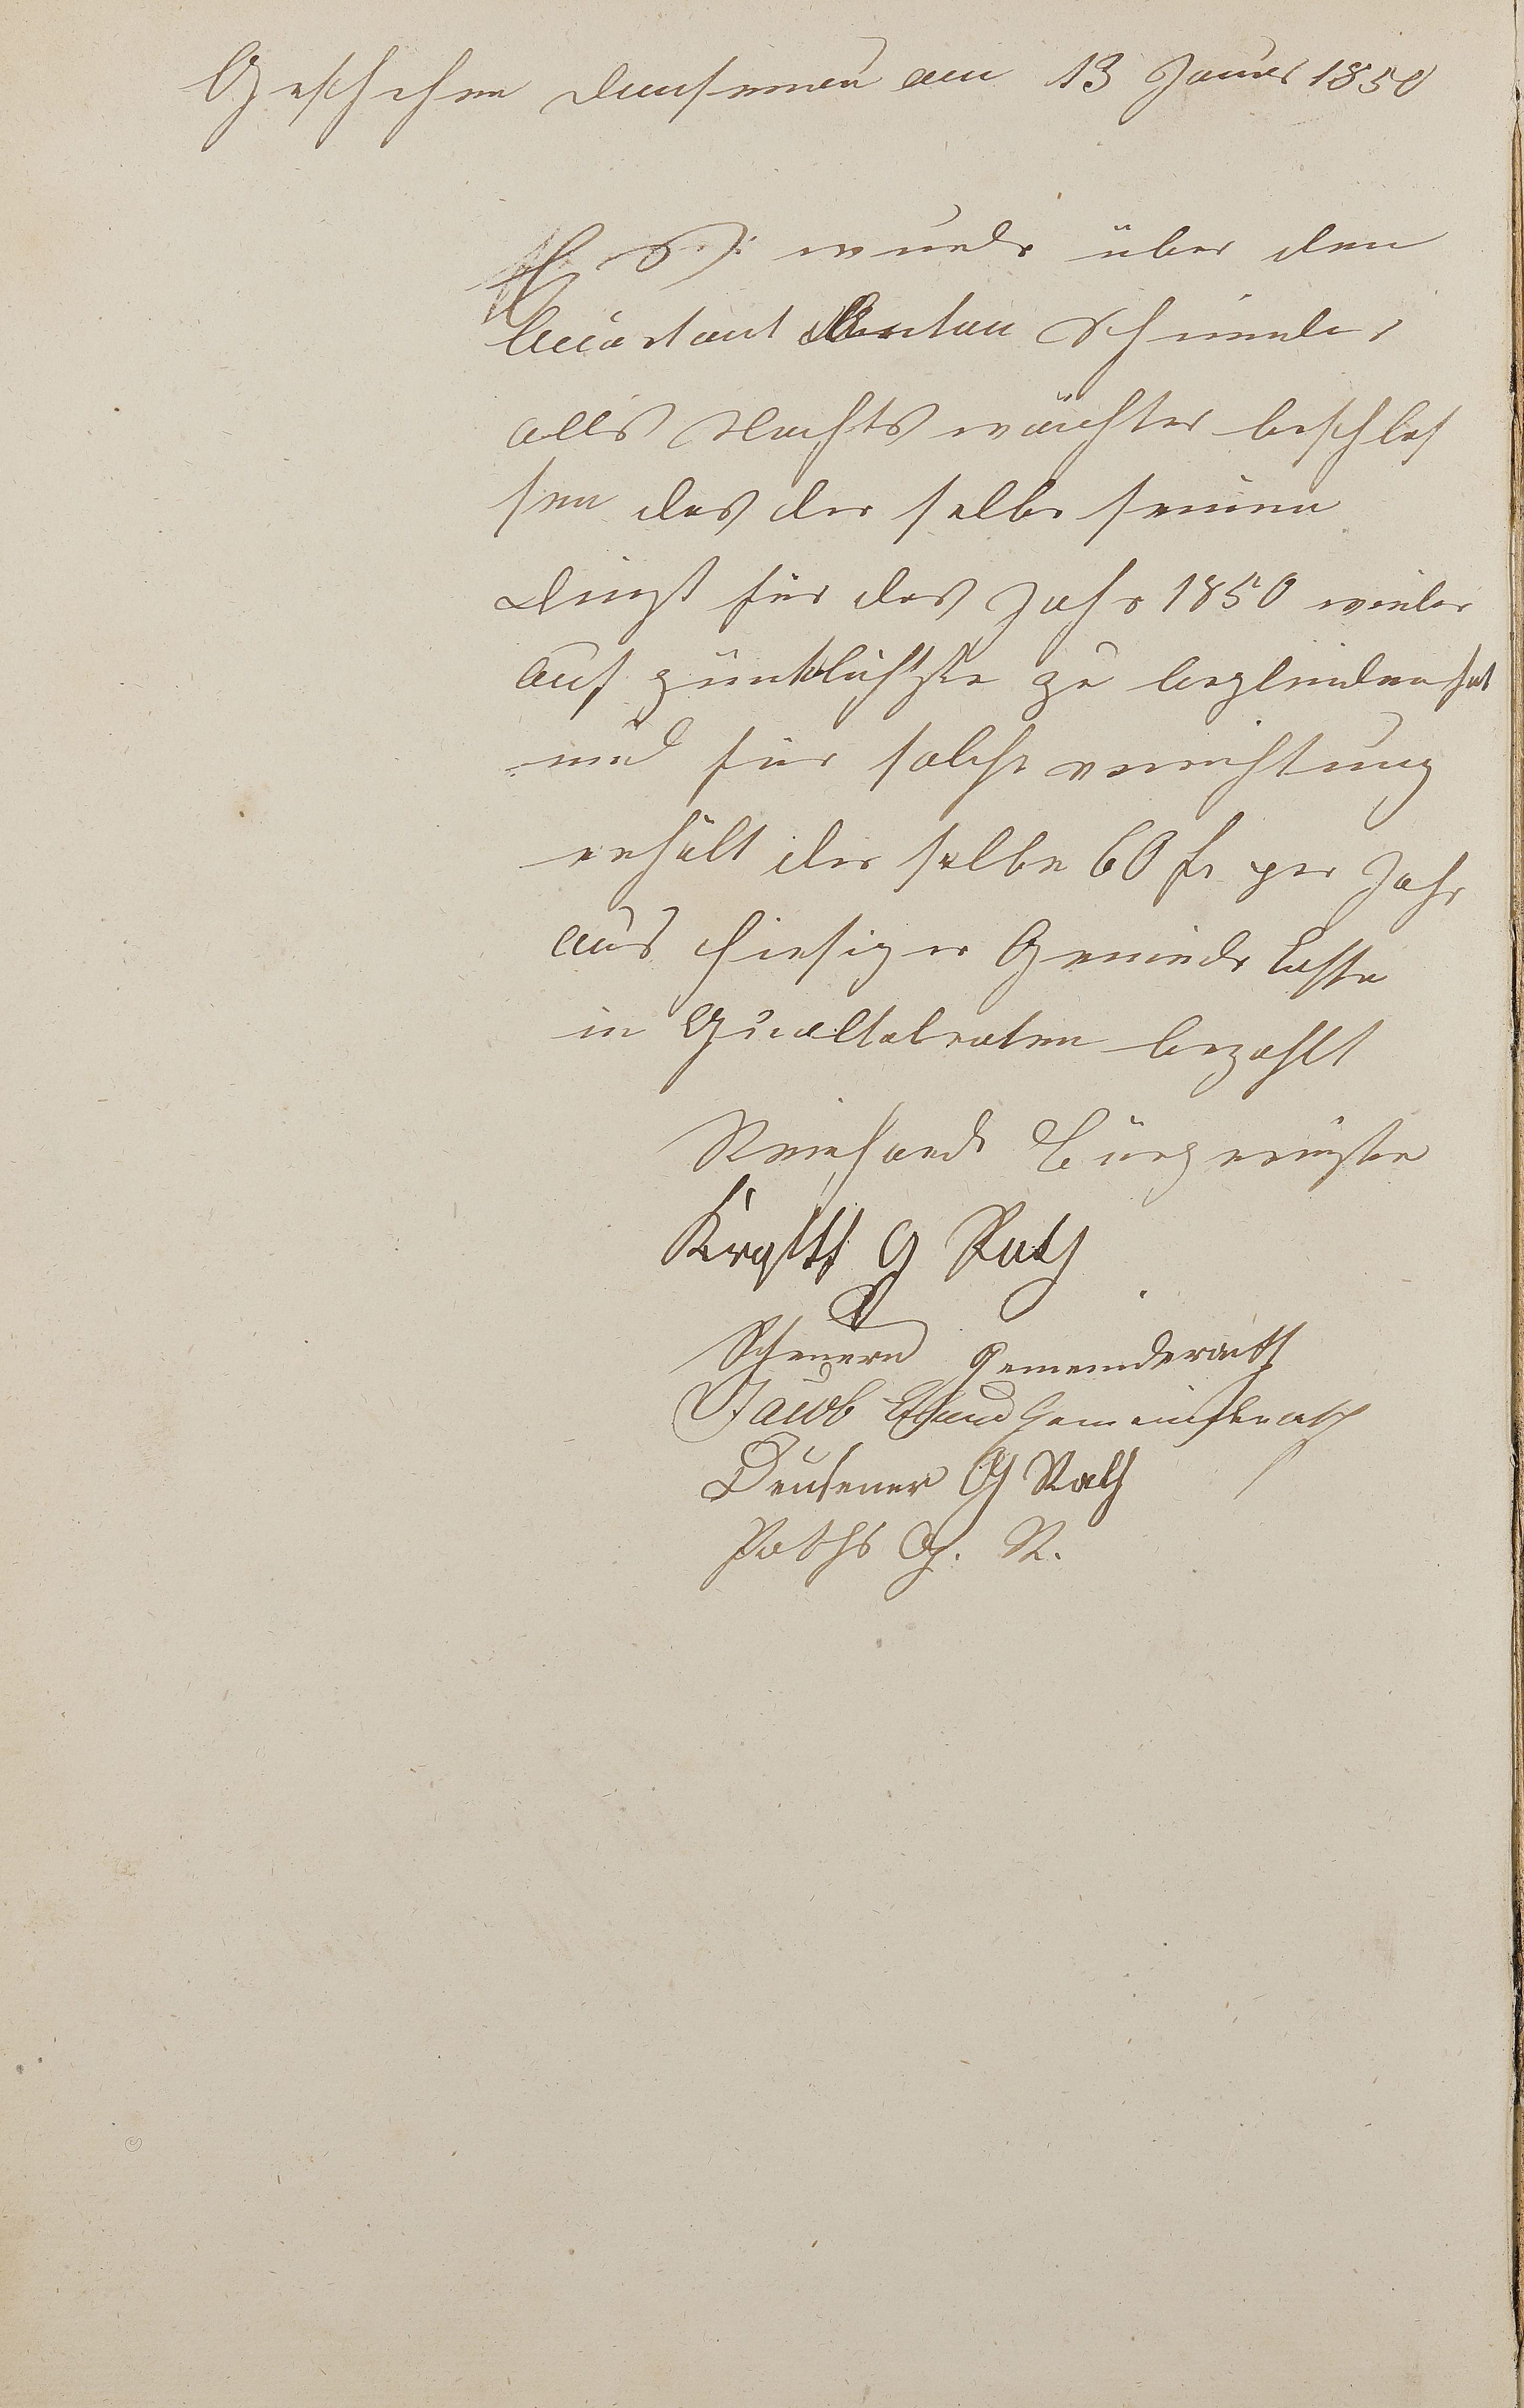 Geschehen Dausenau am 13 Januar 1850
Es wurde über den
Accordant Anton Schneider
alls Nachts wächter beschlos
sen das der selbe seinen
Dinzt für das Jahr 1850 wieder
auf pünktlichste zu begleiden hat
und für solche verrichtung
erhält der selbe 60 fr per Jahr
aus hiesiger Gemeinde Casse
in Qualtalraten bezahlt
Reinhardt Bürgemeister
G Rath
Scheuern Gemeinderath
Jacob Gemeinderath
Deusener G Rath
G. R.